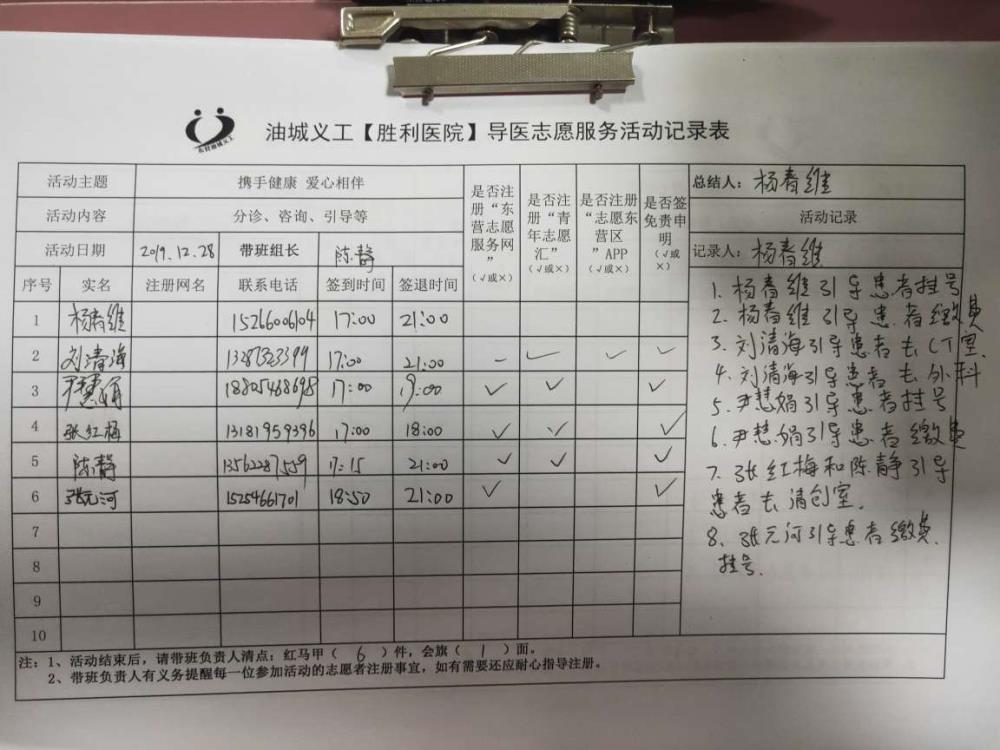 东营油城义工
油城义工【胜利医院】导医志愿服务活动记录表
活动主题 携手健康 爱心相伴 是否注册“东营志愿服务网”（√或×） 是否注册“青年志愿汇”（√或×） 是否注册“志愿东营区”APP（√或×） 是否签免责申明（√或×） 总结人：杨春维
活动内容 分诊、咨询、引导等 活动记录
活动日期 2019.12.28 带班组长 陈静 记录人：杨春维
序号 实名 注册网名 联系电话 签到时间 签退时间
1 杨春维 15266006104 17:00 21:00
2 刘清海 17:00 21:00 – ✓ ✓ ✓
3 尹慧娟 18805468698 17:00 19:00 ✓ ✓ ✓
4 张红梅 13181959396 17:00 18:00 ✓ ✓ ✓
5 陈静 13562287559 17:15 21:00 ✓ ✓ ✓
6 张元河 15254661701 18:50 21:00 ✓ ✓
7
8
9
10
1. 杨春维引导患者挂号
2. 杨春维引导患者缴费
3. 刘清海引导患者去CT室.
4. 刘清海引导患者去外科
5. 尹慧娟引导患者挂号
6. 尹慧娟引导患者缴费
7. 张红梅和陈静引导
患者去清创室.
8. 张元河引导患者缴费.
挂号.
注：1、活动结束后，请带班负责人清点：红马甲（ 6 ）件，会旗（ 1 ）面。
2、带班负责人有义务提醒每一位参加活动的志愿者注册事宜，如有需要还应耐心指导注册。